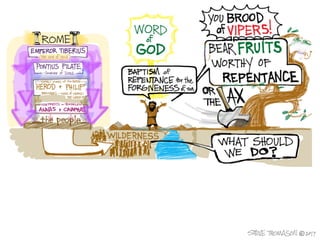 ROME
EMPEROR TIBERIUS
PONTIUS PILATE
HEROD + PHILIP
ANNAS & CAIAPHAS
the people
WORD
of
GOD
BAPTISM of
REPENTANCE for the
FORGIVENESS of sin
WILDERNESS
you BROOD
of VIPERS!
BEAR FRUITS
WORTHY OF
REPENTANCE
OR
THE AX
WHAT SHOULD
WE DO?
STEVE THOMASON © 2017